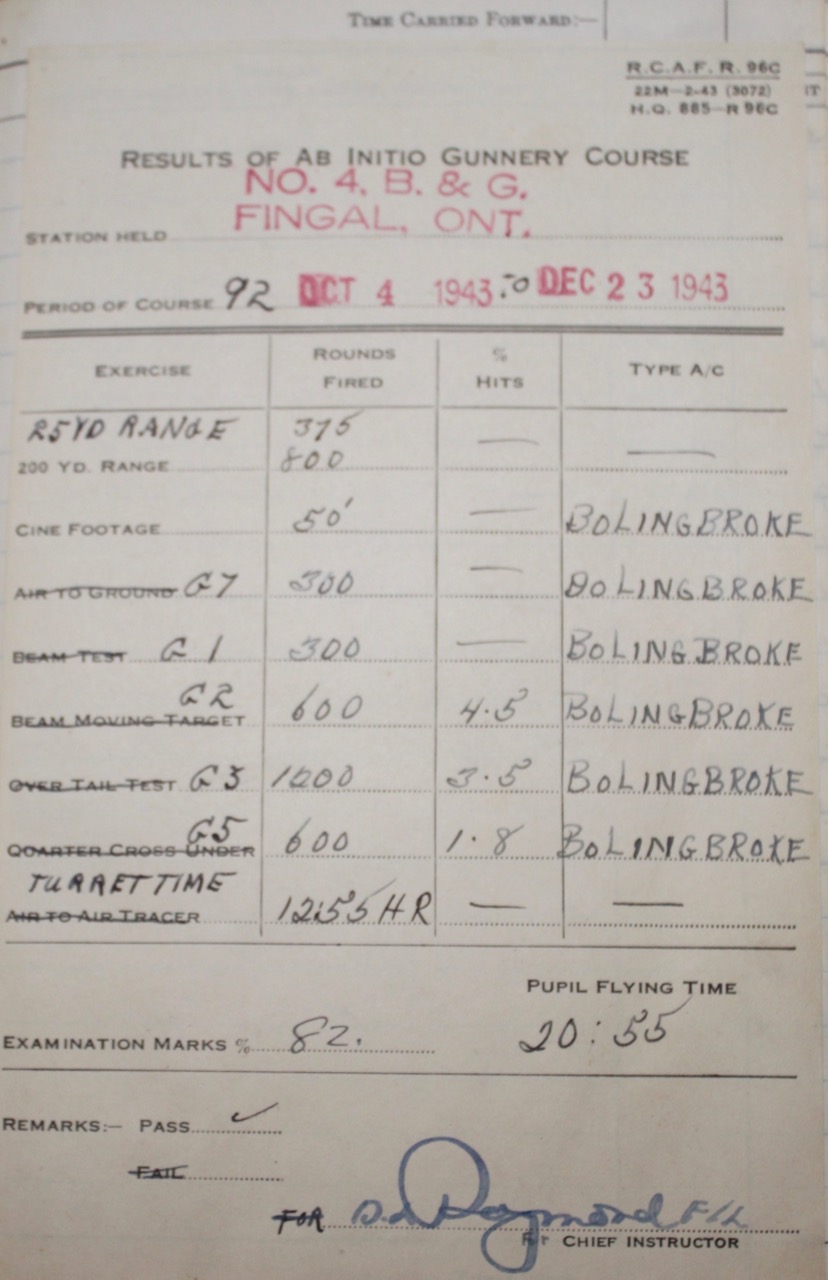 TIME CARRIED FORWARD:—
R.C.A.F. R. 96C
22M—2-43 (3072)
H.Q. 885—R 96C
RESULTS OF AB INITIO GUNNERY COURSE
NO. 4, B. & G.
FINGAL, ONT.
STATION HELD
PERIOD OF COURSE 92 OCT 4 1943 TO DEC 23 1943
EXERCISE ROUNDS FIRED % HITS TYPE A/C
25 YD RANGE 375
200 YD. RANGE 800 — —
CINE FOOTAGE 50' — BOLINGBROKE
AIR TO GROUND G7 300 — BOLINGBROKE
BEAM TEST G1 300 — BOLINGBROKE
G2
BEAM MOVING TARGET 600 4.5 BOLINGBROKE
OVER TAIL TEST G3 1200 3.5 BOLINGBROKE
G5
QUARTER CROSS UNDER 600 1.8 BOLINGBROKE
TURRET TIME
AIR TO AIR TRACER 12:55 HR — —
PUPIL FLYING TIME
EXAMINATION MARKS % 82. 20:55
REMARKS:— PASS ✓
FAIL
FOR Raymond F/L
For CHIEF INSTRUCTOR